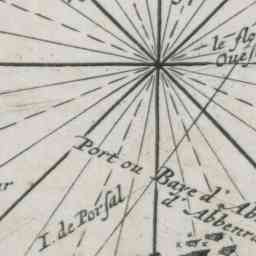 le flo
Oues
Port ou Baye d' Ab
d' Abbenr
I. de Porsal